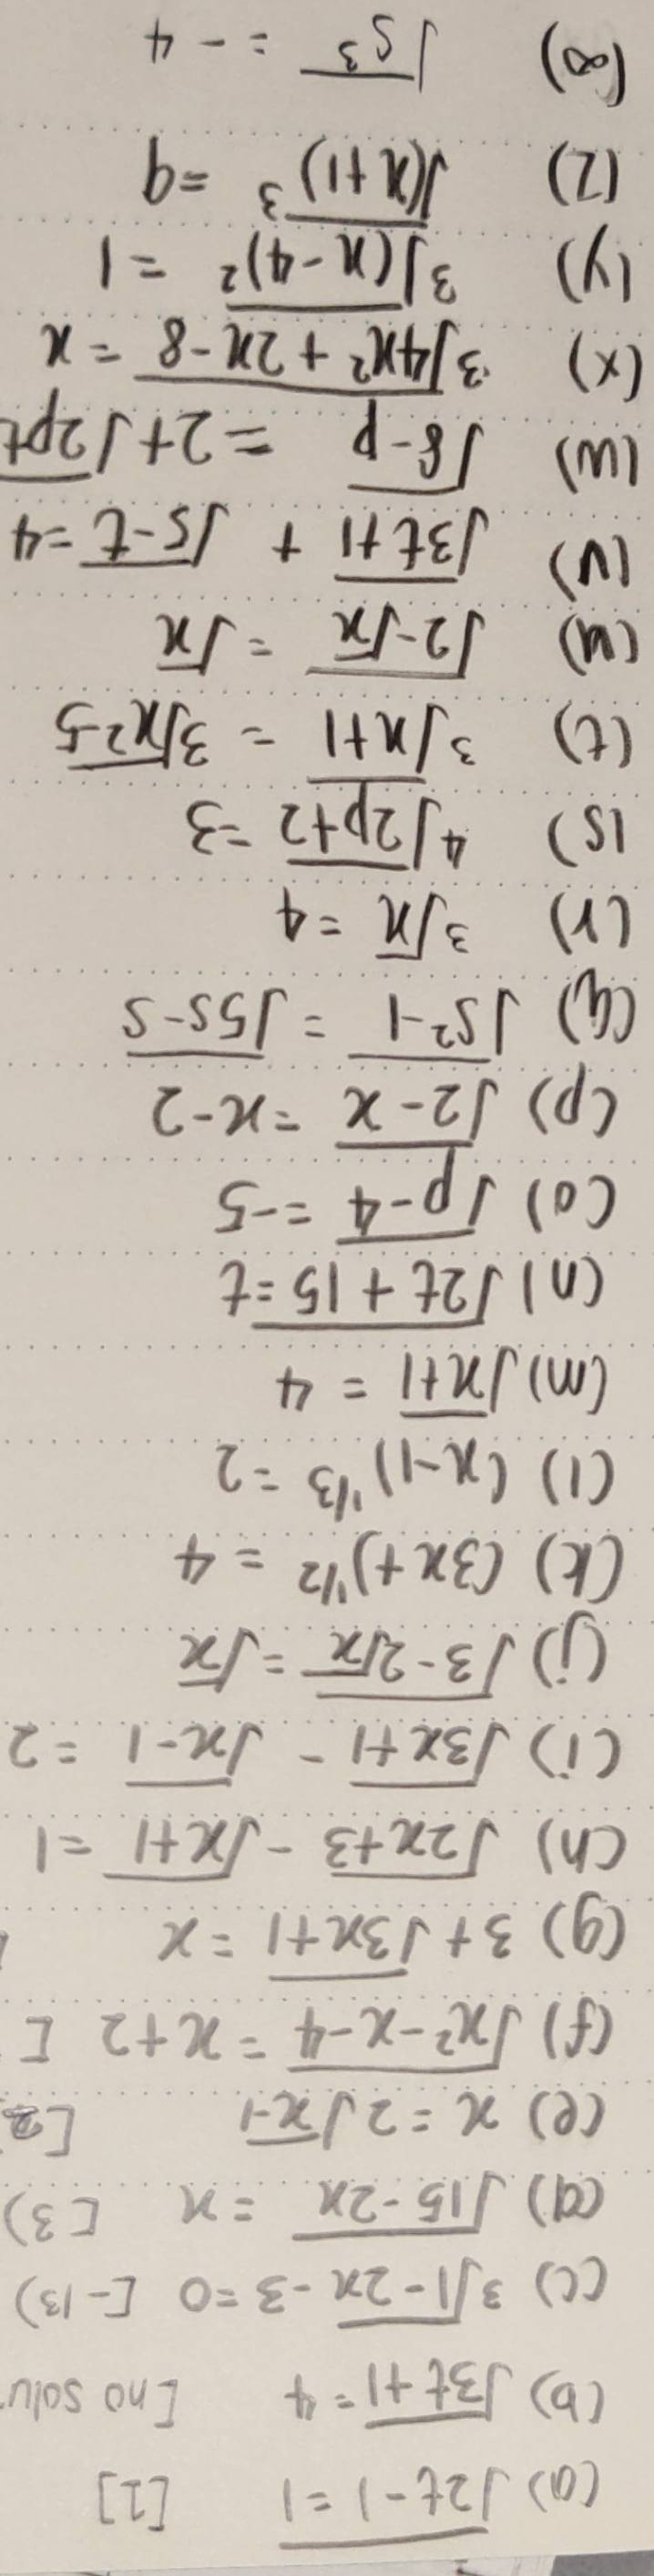 (a) √2t-1 = 1 [1]
(b) √3t+1 = 4 [no solu
(c) ³√1-2x - 3 = 0 [-13)
(d) √15-2x = x [3)
(e) x = 2√x-1
(f) √x²-x-4 = x+2 [
(g) 3+√3x+1 = x
(h) √2x+3 - √x+1 = 1
(i) √3x+1 - √x-1 = 2
(j) √3-2√x = √x
(k) (3x+)^1/2 = 4
(l) (x-1)^1/3 = 2
(m) √x+1 = 4
(n) √2t+15 = t
(o) √p-4 = -5
(p) √2-x = x-2
(q) √s²-1 = √5s-s
(r) ³√x = 4
(s) ⁴√2p+2 = 3
(t) ³√x+1 = 3√x²-5
(u) √2-√x = √x
(v) √3t+1 + √5-t = 4
(w) √8-p = 2+√2pt
(x) ³√4x²+2x-8 = x
(y) ³√(x-4)² = 1
(z) √(x+1)³ = 9
(∞) √s³ = -4